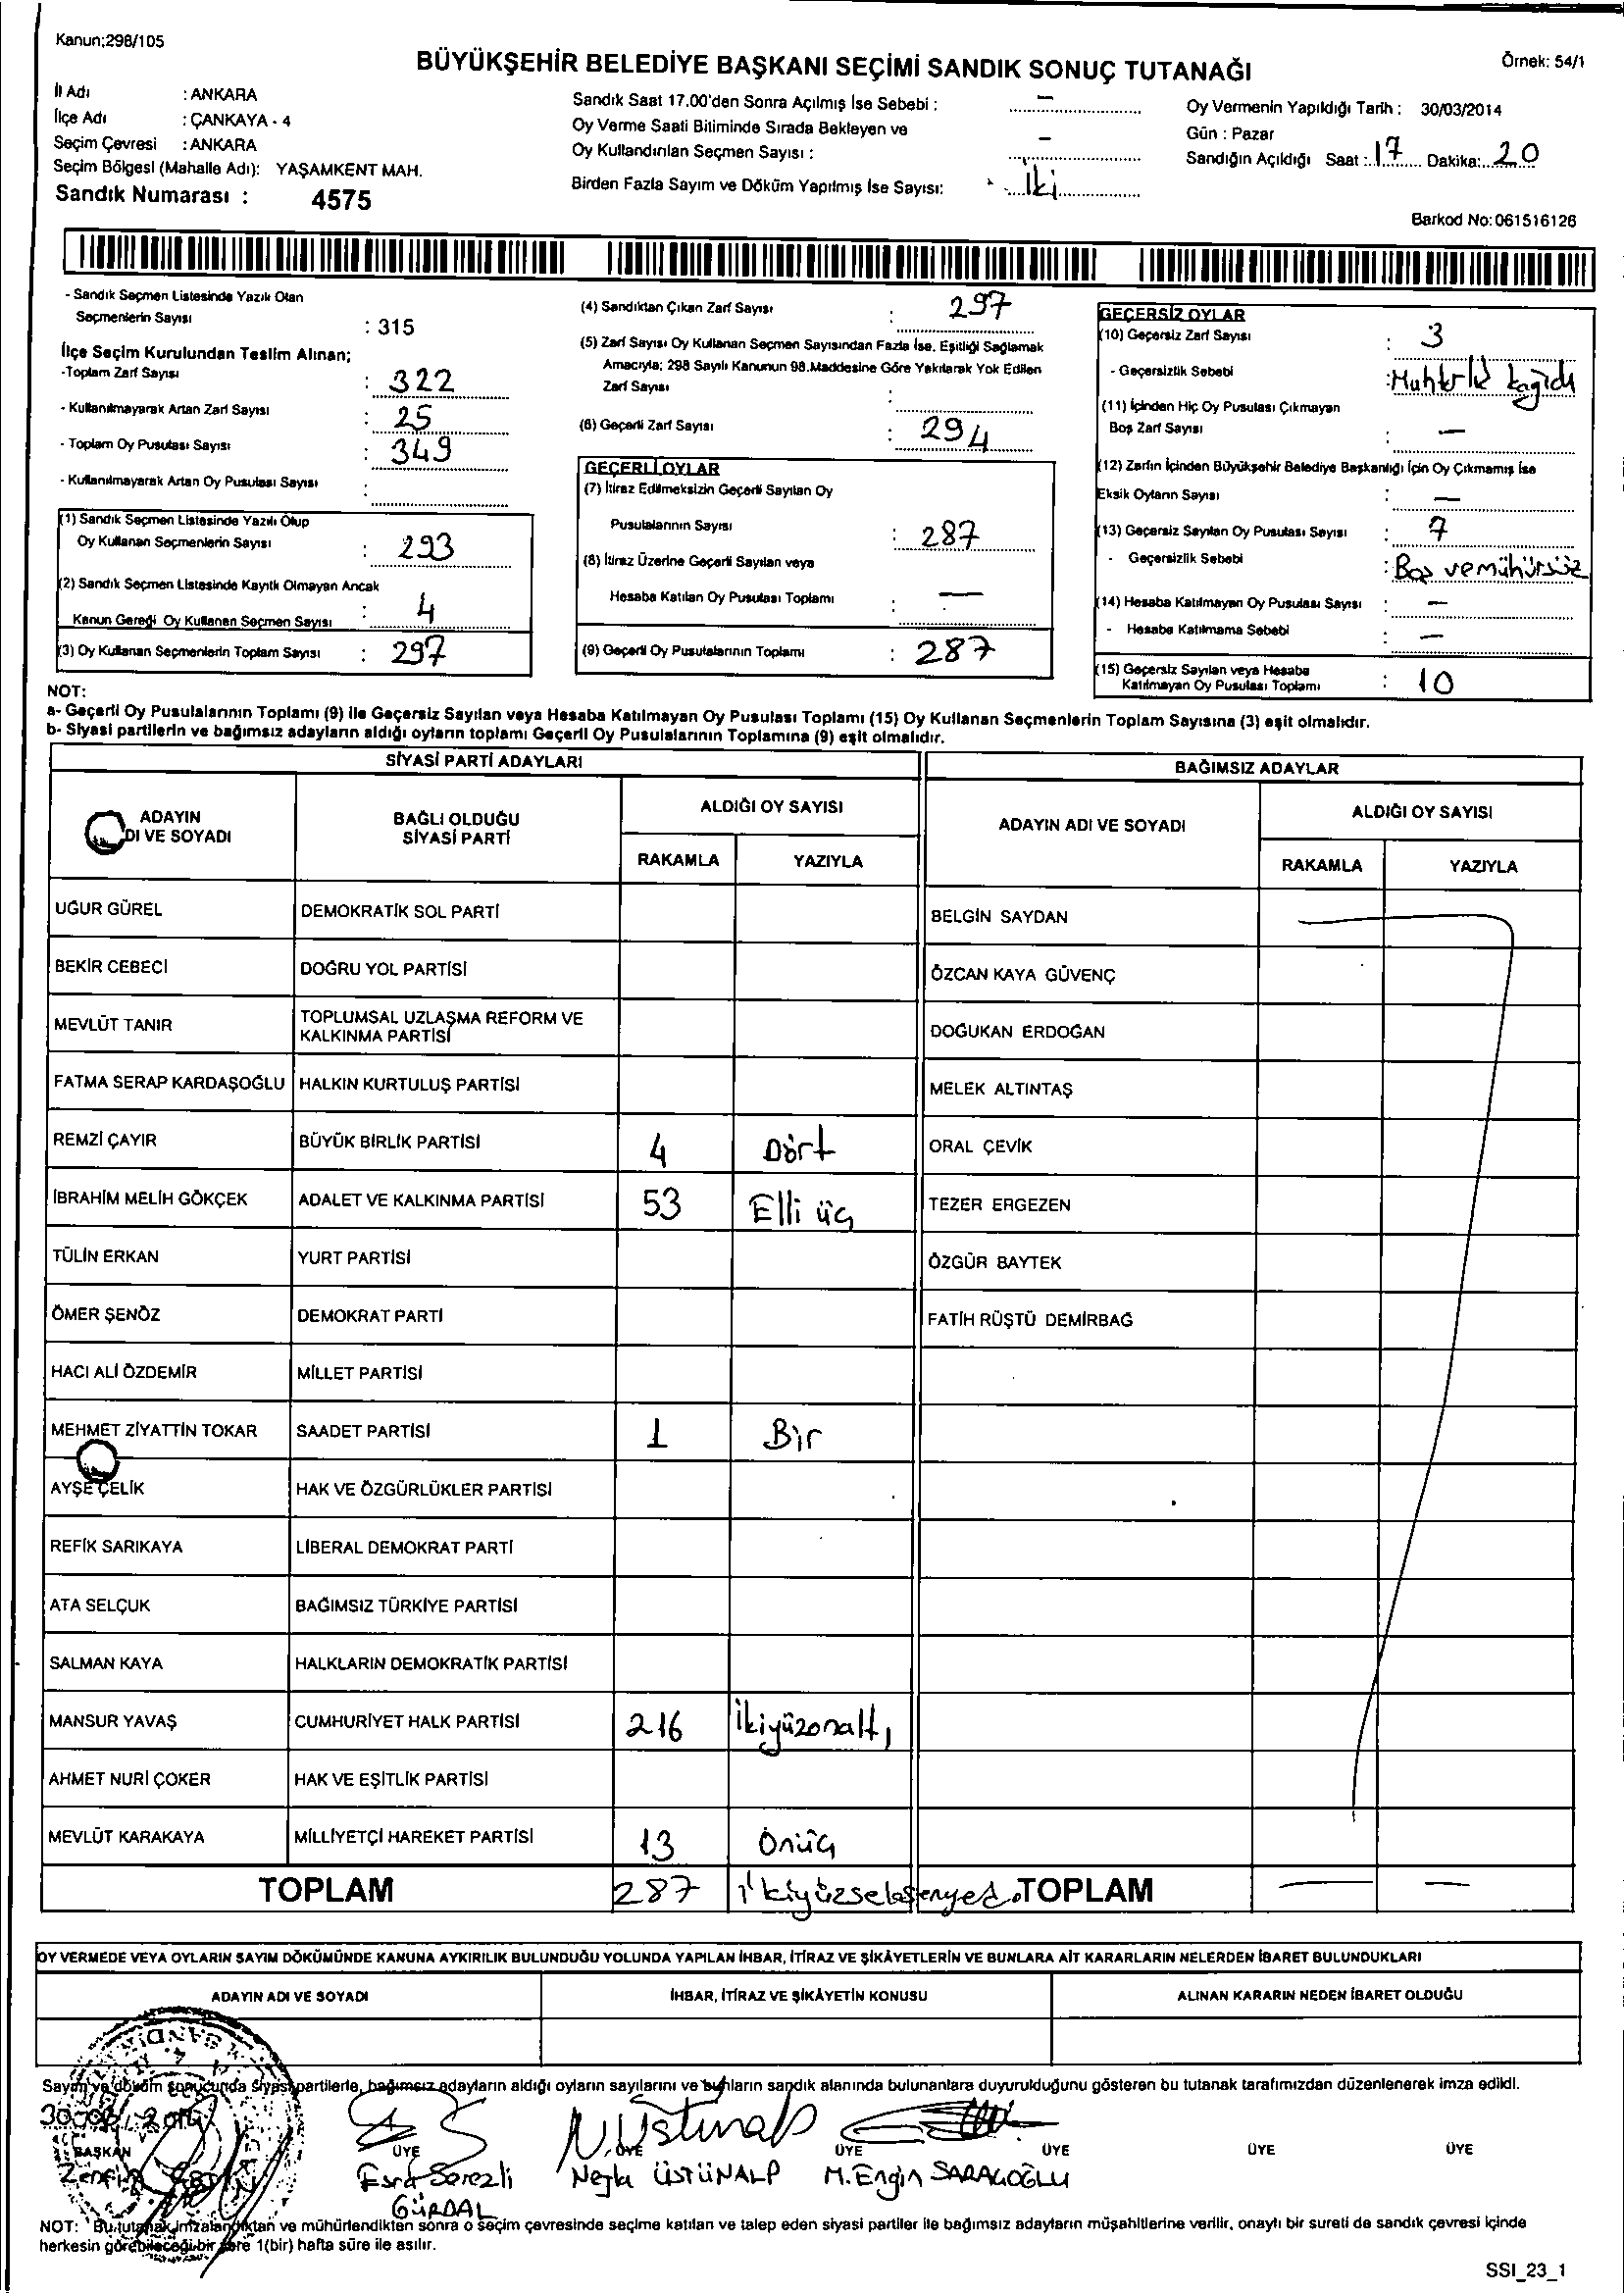 Kanun;298/105
BÜYÜKŞEHİR BELEDİYE BAŞKANI SEÇİMİ SANDIK SONUÇ TUTANAĞI
Örnek: 54/1
İl Adı : ANKARA
İlçe Adı : ÇANKAYA - 4
Seçim Çevresi : ANKARA
Seçim Bölgesi (Mahalle Adı): YAŞAMKENT MAH.
Sandık Numarası : 4575
Sandık Saat 17.00'den Sonra Açılmış İse Sebebi : —
Oy Verme Saati Bitiminde Sırada Bekleyen ve
Oy Kullandırılan Seçmen Sayısı : —
Birden Fazla Sayım ve Döküm Yapılmış İse Sayısı: İki
Oy Vermenin Yapıldığı Tarih : 30/03/2014
Gün : Pazar
Sandığın Açıldığı Saat : 17 Dakika: 20
Barkod No: 061516126
- Sandık Seçmen Listesinde Yazılı Olan
Seçmenlerin Sayısı : 315
İlçe Seçim Kurulundan Teslim Alınan;
-Toplam Zarf Sayısı : 322
- Kullanılmayarak Artan Zarf Sayısı : 25
- Toplam Oy Pusulası Sayısı : 349
- Kullanılmayarak Artan Oy Pusulası Sayısı :
(1) Sandık Seçmen Listesinde Yazılı Olup
Oy Kullanan Seçmenlerin Sayısı : 293
(2) Sandık Seçmen Listesinde Kayıtlı Olmayan Ancak
Kanun Gereği Oy Kullanan Seçmen Sayısı : 4
(3) Oy Kullanan Seçmenlerin Toplam Sayısı : 297
(4) Sandıktan Çıkan Zarf Sayısı : 297
(5) Zarf Sayısı Oy Kullanan Seçmen Sayısından Fazla İse, Eşitliği Sağlamak
Amacıyla; 298 Sayılı Kanunun 98.Maddesine Göre Yakılarak Yok Edilen
Zarf Sayısı :
(6) Geçerli Zarf Sayısı : 294
GEÇERLİ OYLAR
(7) İtiraz Edilmeksizin Geçerli Sayılan Oy
Pusulalarının Sayısı : 287
(8) İtiraz Üzerine Geçerli Sayılan veya
Hesaba Katılan Oy Pusulası Toplamı : —
(9) Geçerli Oy Pusulalarının Toplamı : 287
GEÇERSİZ OYLAR
(10) Geçersiz Zarf Sayısı : 3
- Geçersizlik Sebebi : Muhtarlık kağıdı
(11) İçinden Hiç Oy Pusulası Çıkmayan
Boş Zarf Sayısı : —
(12) Zarfın İçinden Büyükşehir Belediye Başkanlığı İçin Oy Çıkmamış İse
Eksik Oyların Sayısı : —
(13) Geçersiz Sayılan Oy Pusulası Sayısı : 7
- Geçersizlik Sebebi : Boş ve mühürsüz
(14) Hesaba Katılmayan Oy Pusulası Sayısı : —
- Hesaba Katılmama Sebebi : —
(15) Geçersiz Sayılan veya Hesaba
Katılmayan Oy Pusulası Toplamı : 10
NOT:
a- Geçerli Oy Pusulalarının Toplamı (9) ile Geçersiz Sayılan veya Hesaba Katılmayan Oy Pusulası Toplamı (15) Oy Kullanan Seçmenlerin Toplam Sayısına (3) eşit olmalıdır.
b- Siyasi partilerin ve bağımsız adayların aldığı oyların toplamı Geçerli Oy Pusulalarının Toplamına (9) eşit olmalıdır.
SİYASİ PARTİ ADAYLARI
BAĞIMSIZ ADAYLAR
ADAYIN
DI VE SOYADI
BAĞLI OLDUĞU
SİYASİ PARTİ
ALDIĞI OY SAYISI
RAKAMLA YAZIYLA
ADAYIN ADI VE SOYADI
ALDIĞI OY SAYISI
RAKAMLA YAZIYLA
UĞUR GÜREL DEMOKRATİK SOL PARTİ BELGİN SAYDAN
BEKİR CEBECİ DOĞRU YOL PARTİSİ ÖZCAN KAYA GÜVENÇ
MEVLÜT TANIR TOPLUMSAL UZLAŞMA REFORM VE
KALKINMA PARTİSİ DOĞUKAN ERDOĞAN
FATMA SERAP KARDAŞOĞLU HALKIN KURTULUŞ PARTİSİ MELEK ALTINTAŞ
REMZİ ÇAYIR BÜYÜK BİRLİK PARTİSİ 4 Dört ORAL ÇEVİK
İBRAHİM MELİH GÖKÇEK ADALET VE KALKINMA PARTİSİ 53 Elli üç TEZER ERGEZEN
TÜLİN ERKAN YURT PARTİSİ ÖZGÜR BAYTEK
ÖMER ŞENÖZ DEMOKRAT PARTİ FATİH RÜŞTÜ DEMİRBAĞ
HACI ALİ ÖZDEMİR MİLLET PARTİSİ
MEHMET ZİYATTİN TOKAR SAADET PARTİSİ 1 Bir
AYŞE ÇELİK HAK VE ÖZGÜRLÜKLER PARTİSİ
REFİK SARIKAYA LİBERAL DEMOKRAT PARTİ
ATA SELÇUK BAĞIMSIZ TÜRKİYE PARTİSİ
SALMAN KAYA HALKLARIN DEMOKRATİK PARTİSİ
MANSUR YAVAŞ CUMHURİYET HALK PARTİSİ 216 İkiyüzonaltı
AHMET NURİ ÇOKER HAK VE EŞİTLİK PARTİSİ
MEVLÜT KARAKAYA MİLLİYETÇİ HAREKET PARTİSİ 13 Onüç
TOPLAM 287 İkiyüzseksenyedi TOPLAM — —
OY VERMEDE VEYA OYLARIN SAYIM DÖKÜMÜNDE KANUNA AYKIRILIK BULUNDUĞU YOLUNDA YAPILAN İHBAR, İTİRAZ VE ŞİKÂYETLERİN VE BUNLARA AİT KARARLARIN NELERDEN İBARET BULUNDUKLARI
ADAYIN ADI VE SOYADI İHBAR, İTİRAZ VE ŞİKÂYETİN KONUSU ALINAN KARARIN NEDEN İBARET OLDUĞU
Sayım ve döküm sonucunda siyasi partilerle, bağımsız adayların aldığı oyların sayılarını ve bunların sandık alanında bulunanlara duyurulduğunu gösteren bu tutanak tarafımızdan düzenlenerek imza edildi.
N.Üstünalp
BAŞKAN ÜYE ÜYE ÜYE ÜYE ÜYE ÜYE
Esra Serezli Nejla ÜSTÜNALP M.Engin SARAÇOĞLU
GÜRDAL
NOT: Bu tutanak imzalandıktan ve mühürlendikten sonra o seçim çevresinde seçime katılan ve talep eden siyasi partiler ile bağımsız adayların müşahitlerine verilir, onaylı bir sureti de sandık çevresi içinde
herkesin görebileceği bir yere 1(bir) hafta süre ile asılır.
SSI_23_1